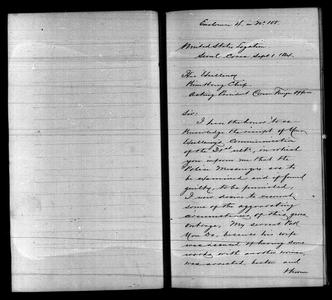 Enclosure 4. in No. 188.
United States Legation
Seoul, Corea Sept 1. 1884.
His Excellency
Acting President Corean Foreign Office
Sir:
I have the honor to ac-
knowledge the receipt of Your
Excellency's Communication
of the 31st ult., in which
you inform me that the
Police Messengers are to
be examined and if found
guilty, to be punished.
I now desire to recount
some of the aggravating
circumstances of this gross
outrage. My servant Pak
Yon Co, because his wife
was accused of having done
work, with another woman,
was arrested, beaten and